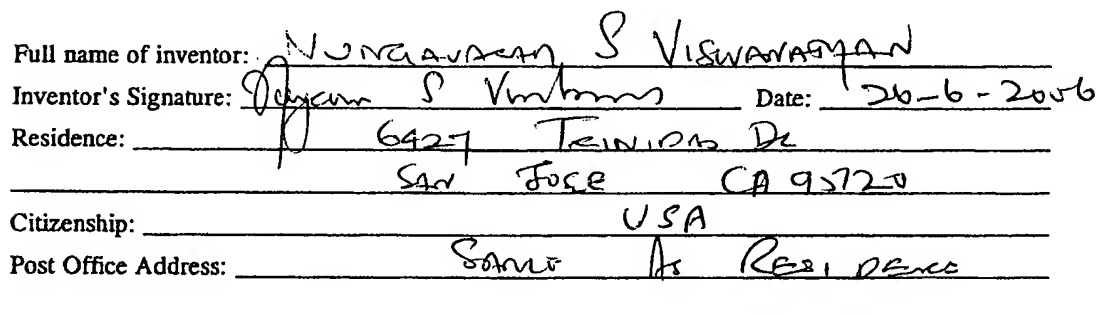 Full name of inventor: NUNGAVARAM S VISWANATHAN
Inventor's Signature: S Date: 26-6-2006
Residence: 6427 TRINIDAD DR
SAN JOSE CA 95120
Citizenship: USA
Post Office Address: SAME AS RESIDENCE